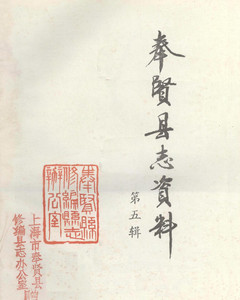 奉贤县志資料
第五辑
奉賢縣
修編縣志
辦公室
上海市奉贤县
修编县志办公室